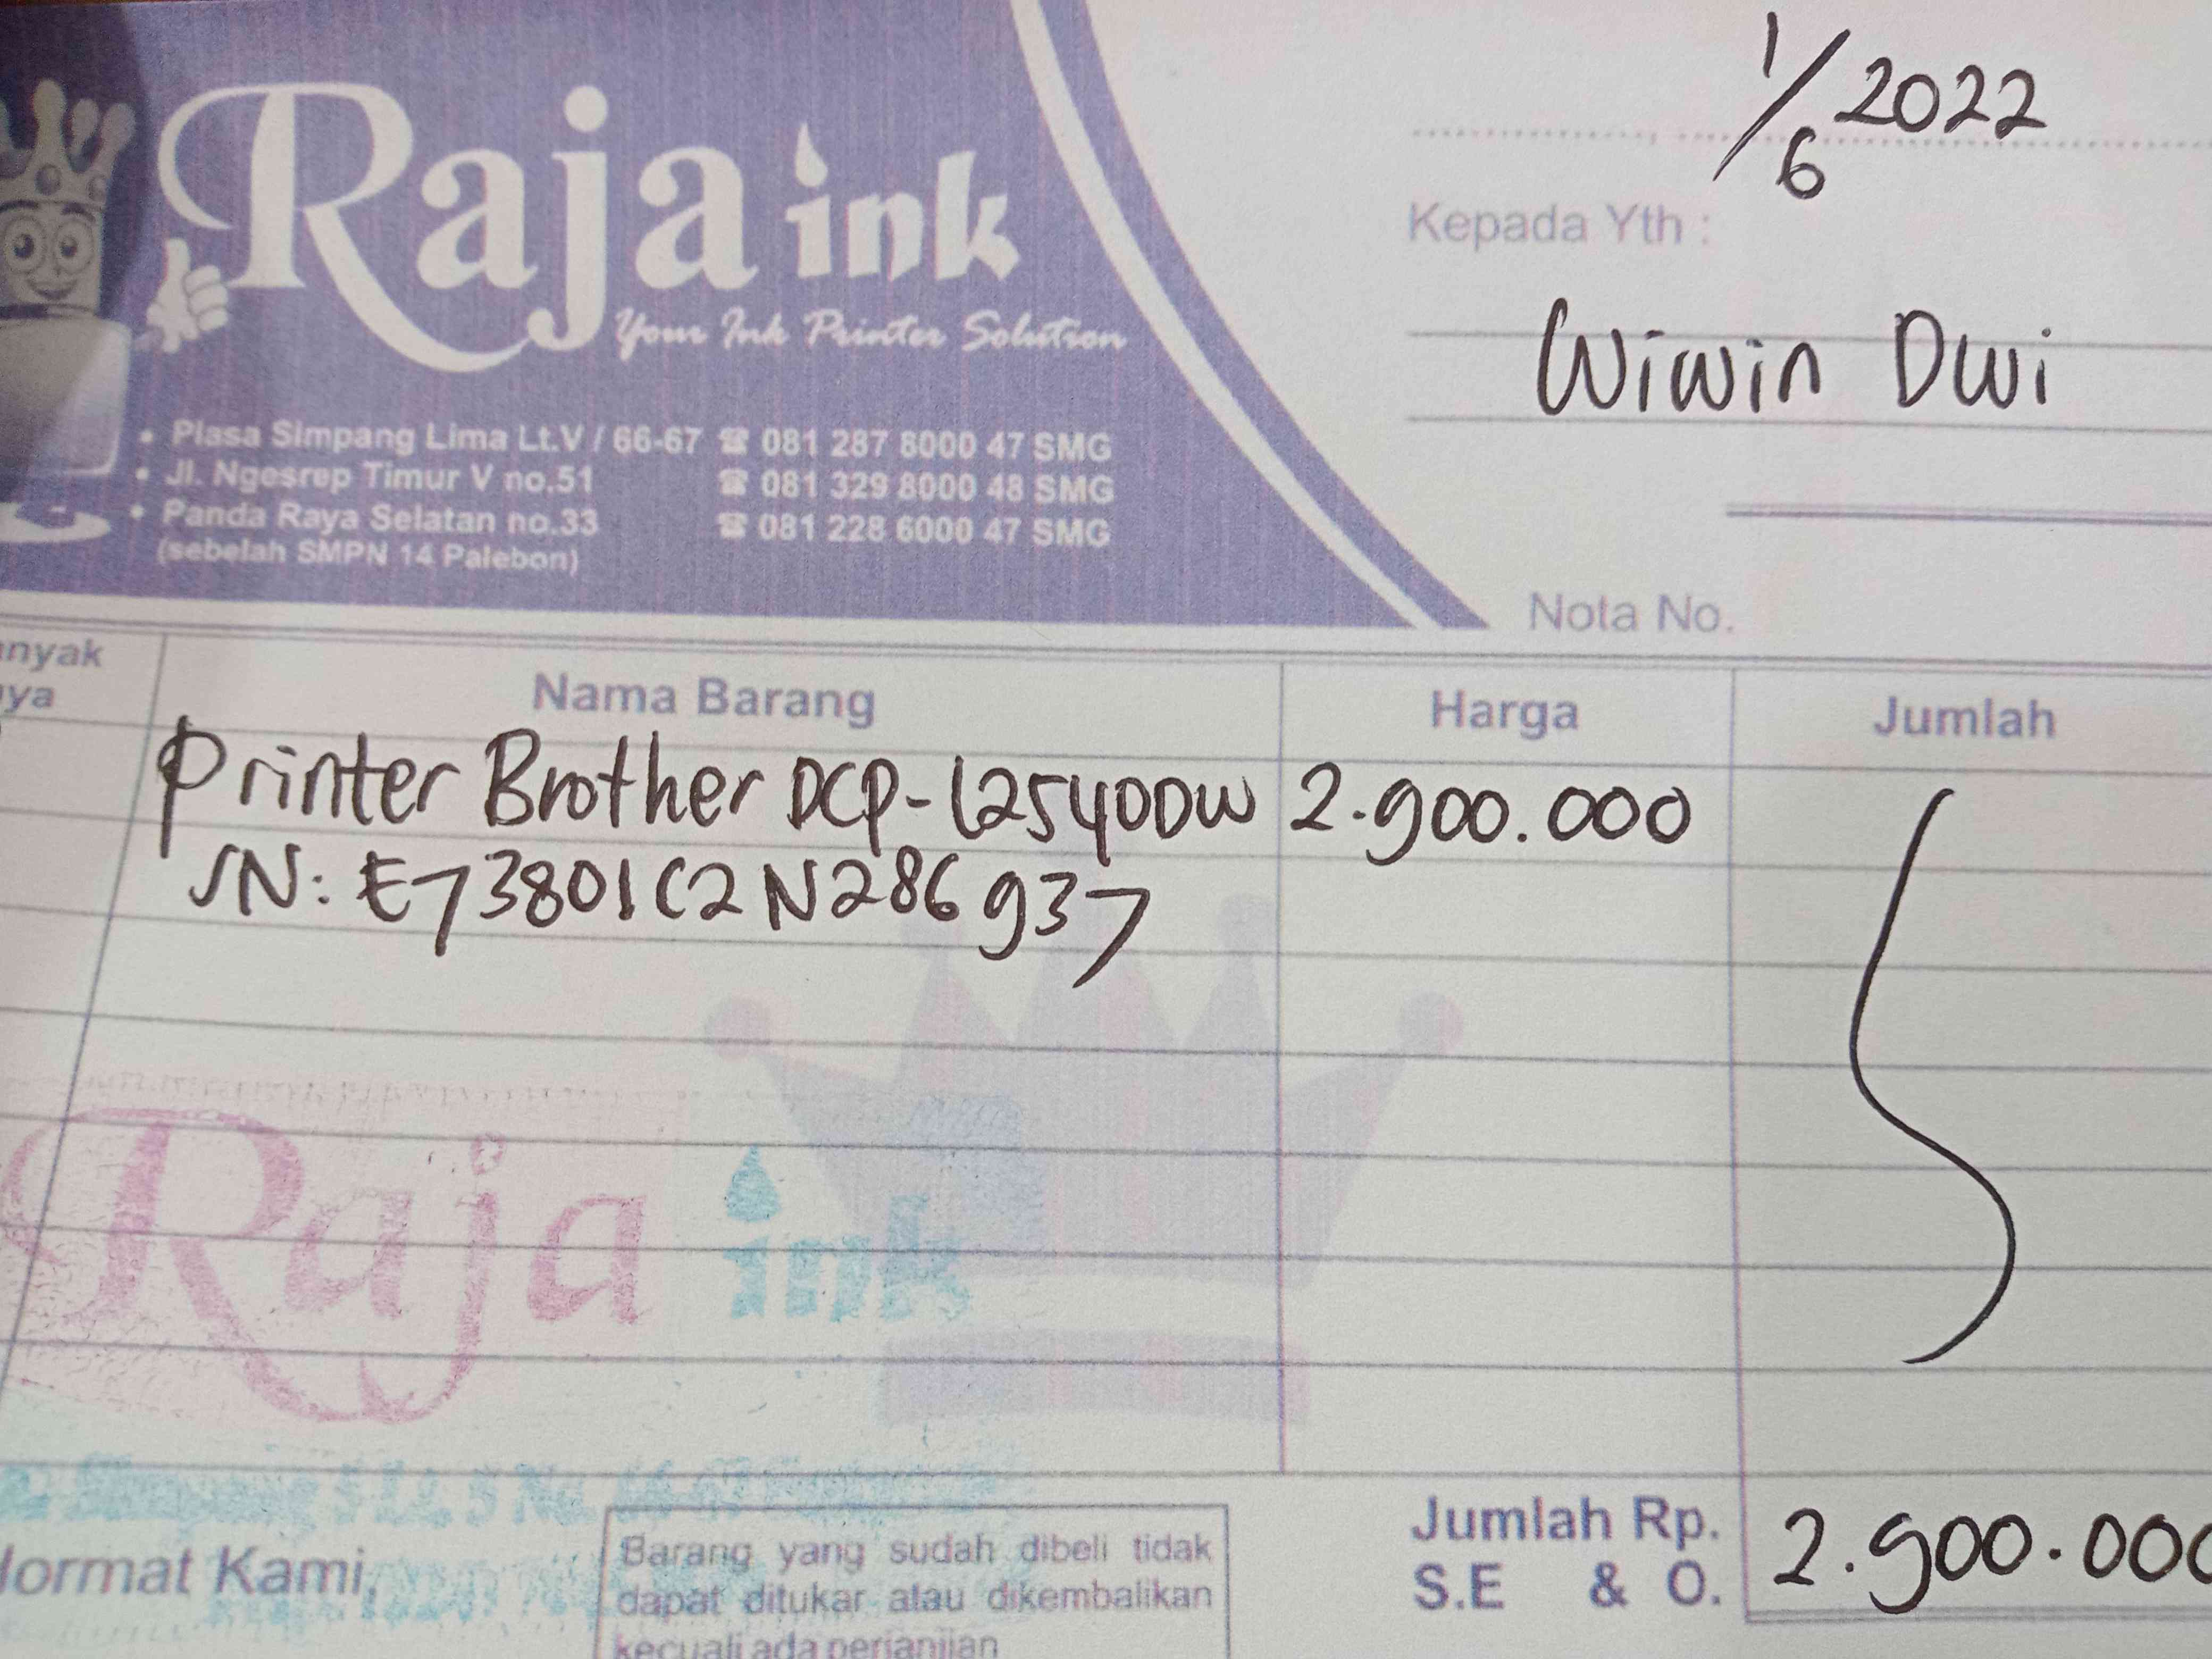 Raja ink
Your Ink Printer Solution
• Plasa Simpang Lima Lt.V / 66-67 ☎ 081 287 8000 47 SMG
• Jl. Ngesrep Timur V no.51 ☎ 081 329 8000 48 SMG
• Panda Raya Selatan no.33 ☎ 081 228 6000 47 SMG
(sebelah SMPN 14 Palebon)
1/6 2022
Kepada Yth :
Wiwin Dwi
Nota No.
anyak
ya
Nama Barang Harga Jumlah
Printer Brother DCP-L2540DW 2.900.000
SN: E73801C2N286937
Raja ink
Jumlah Rp. 2.900.000
S.E & O.
Hormat Kami,
Barang yang sudah dibeli tidak
dapat ditukar atau dikembalikan
kecuali ada perjanjian